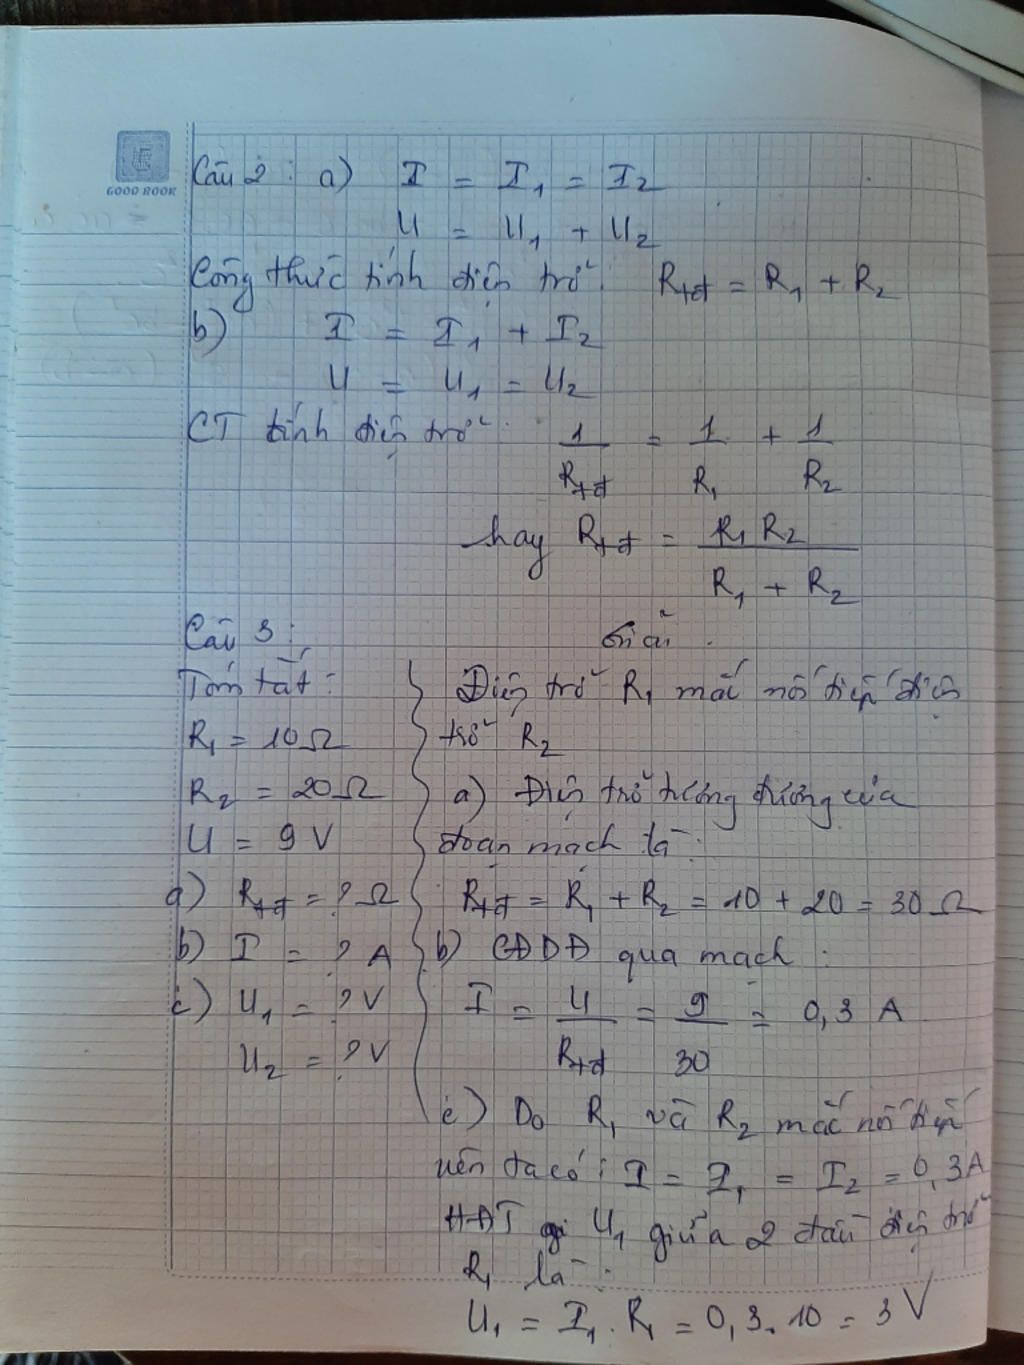 GOOD BOOK
Câu 2 : a) I = I₁ = I₂
U = U₁ + U₂
Công thức tính điện trở : Rtđ = R₁ + R₂
b) I = I₁ + I₂
U = U₁ = U₂
CT tính điện trở : 1/Rtđ = 1/R₁ + 1/R₂
hay Rtđ = R₁ R₂ / R₁ + R₂
Câu 3 :
Tóm tắt :
R₁ = 10 Ω
R₂ = 20 Ω
U = 9 V
a) Rtđ = ? Ω
b) I = ? A
c) U₁ = ? V
U₂ = ? V
Giải .
Điện trở R₁ mắc nối tiếp điện
trở R₂
a) Điện trở tương đương của
đoạn mạch là :
Rtđ = R₁ + R₂ = 10 + 20 = 30 Ω
b) CĐDĐ qua mạch :
I = U/Rtđ = 9/30 = 0,3 A
c) Do R₁ và R₂ mắc nối tiếp
nên ta có : I = I₁ = I₂ = 0,3 A
HĐT U₁ giữa 2 đầu điện trở
R₁ là :
U₁ = I₁ . R₁ = 0,3 . 10 = 3 V